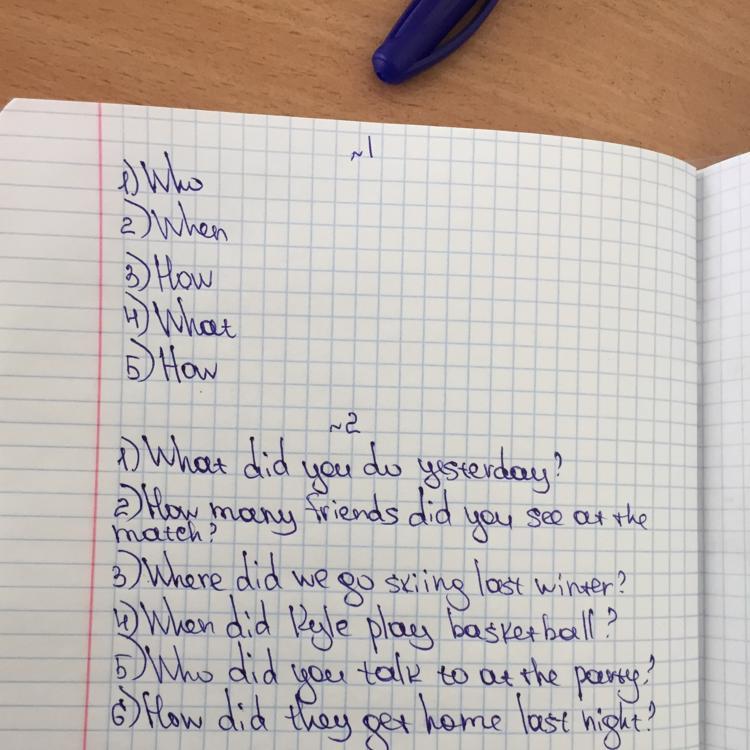 ~1
1) Who
2) When
3) How
4) What
5) How
~2
1) What did you do yesterday?
2) How many friends did you see at the
match?
3) Where did we go skiing last winter?
4) When did Kyle play basketball?
5) Who did you talk to at the party?
6) How did they get home last night?